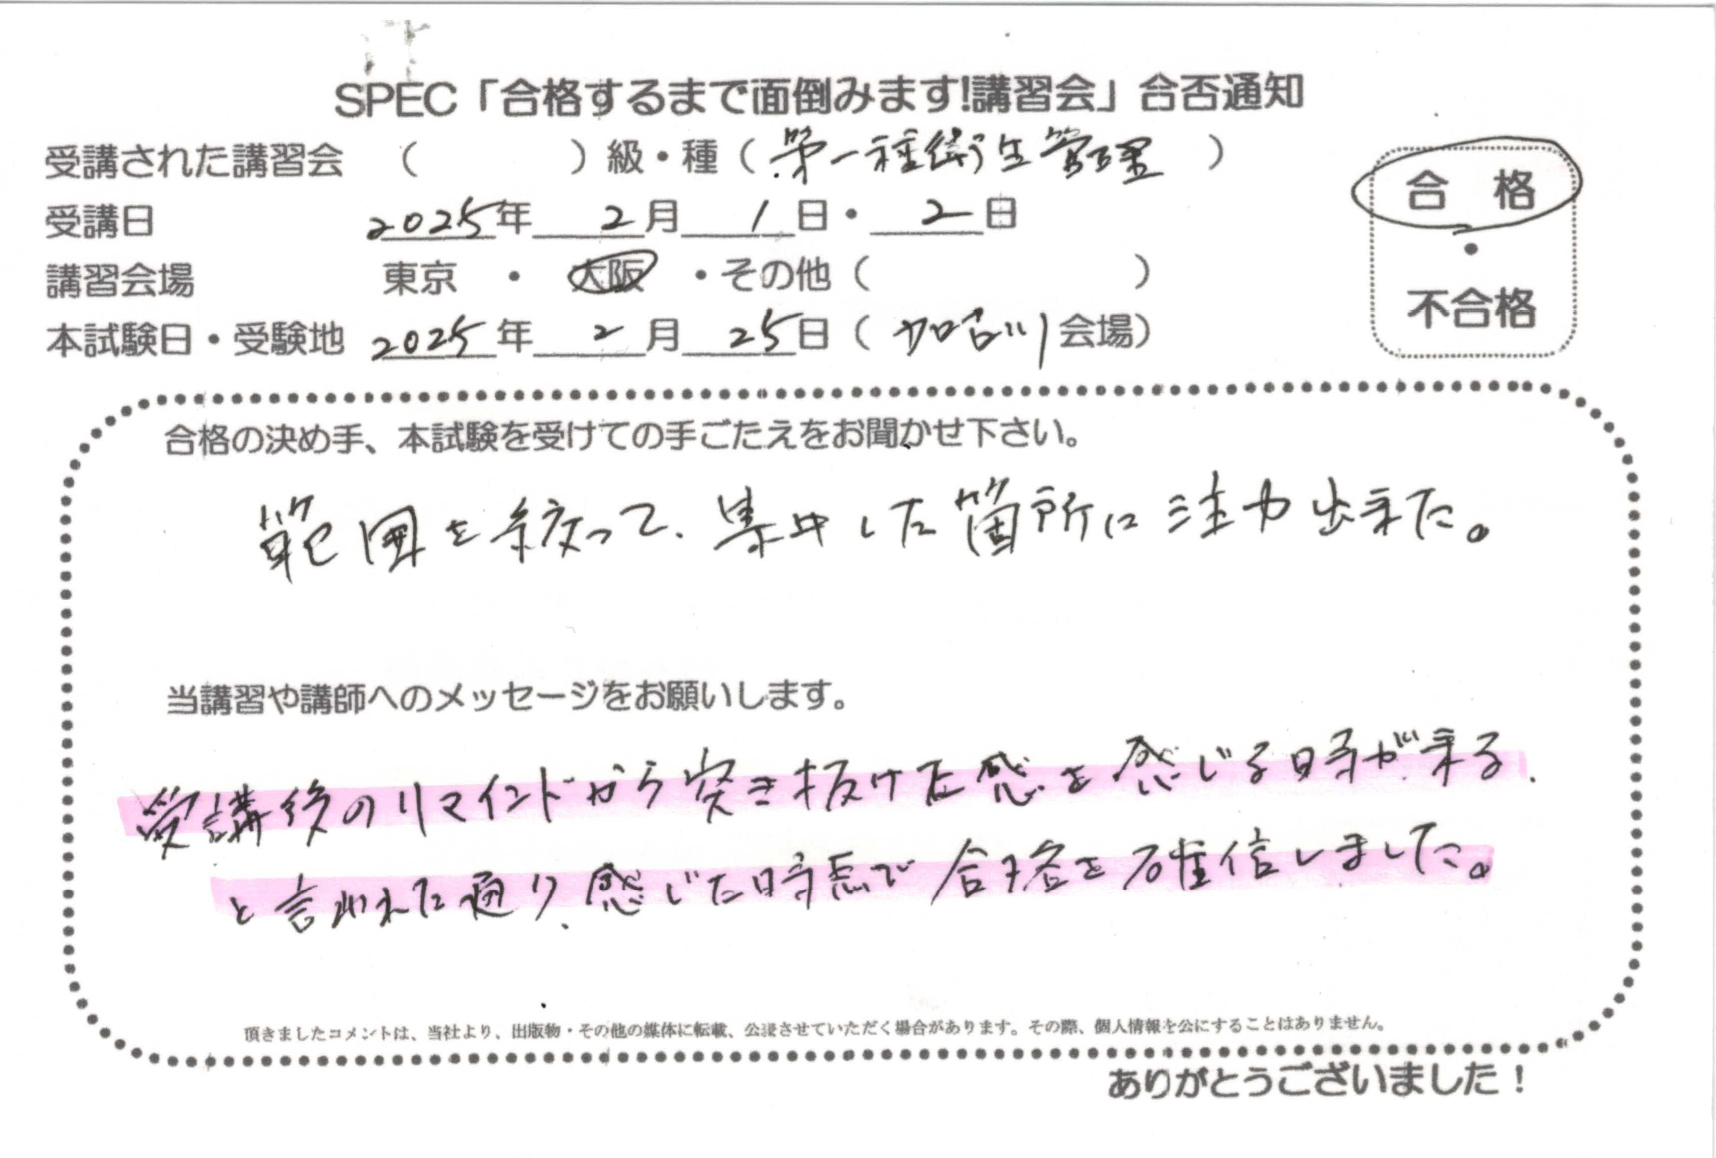 SPEC「合格するまで面倒みます!講習会」合否通知
受講された講習会 （　　　）級・種（第一種衛生管理）
合　格
受講日 2025年 2月 1日・ 2日
・
講習会場 東京 ・ 大阪 ・その他（　　　）
不合格
本試験日・受験地 2025年 2月 25日（加古川会場）
合格の決め手、本試験を受けての手ごたえをお聞かせ下さい。
範囲を絞って、集中した箇所に注力出来た。
当講習や講師へのメッセージをお願いします。
受講後のリマインドから突き抜けた感を感じる時が来る、
と言われた通り、感じた時点で合格を確信しました。
頂きましたコメントは、当社より、出版物・その他の媒体に転載、公表させていただく場合があります。その際、個人情報を公にすることはありません。
ありがとうございました！